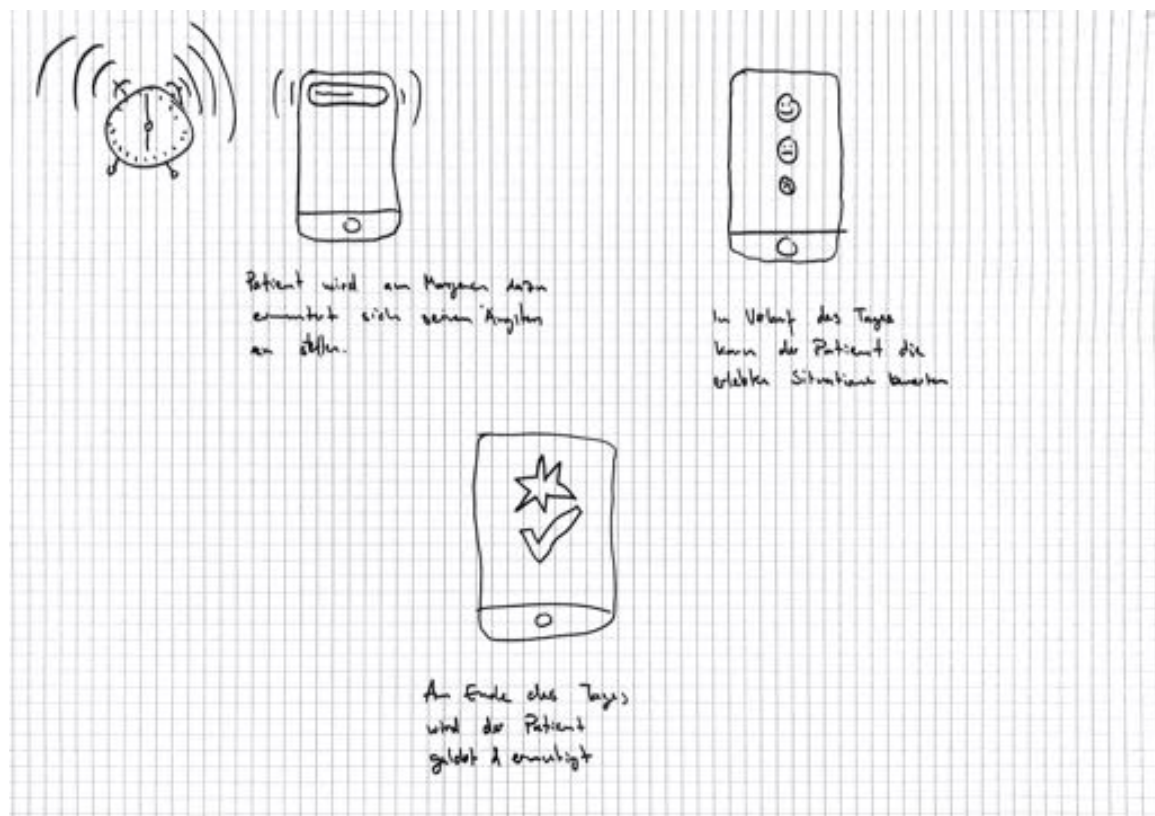 Patient wird am Morgen dazu
ermuntert sich seinen Ängsten
zu stellen.
Im Verlauf des Tages
kann der Patient die
erlebten Situationen bewerten
Am Ende des Tages
wird der Patient
gelobt & ermutigt